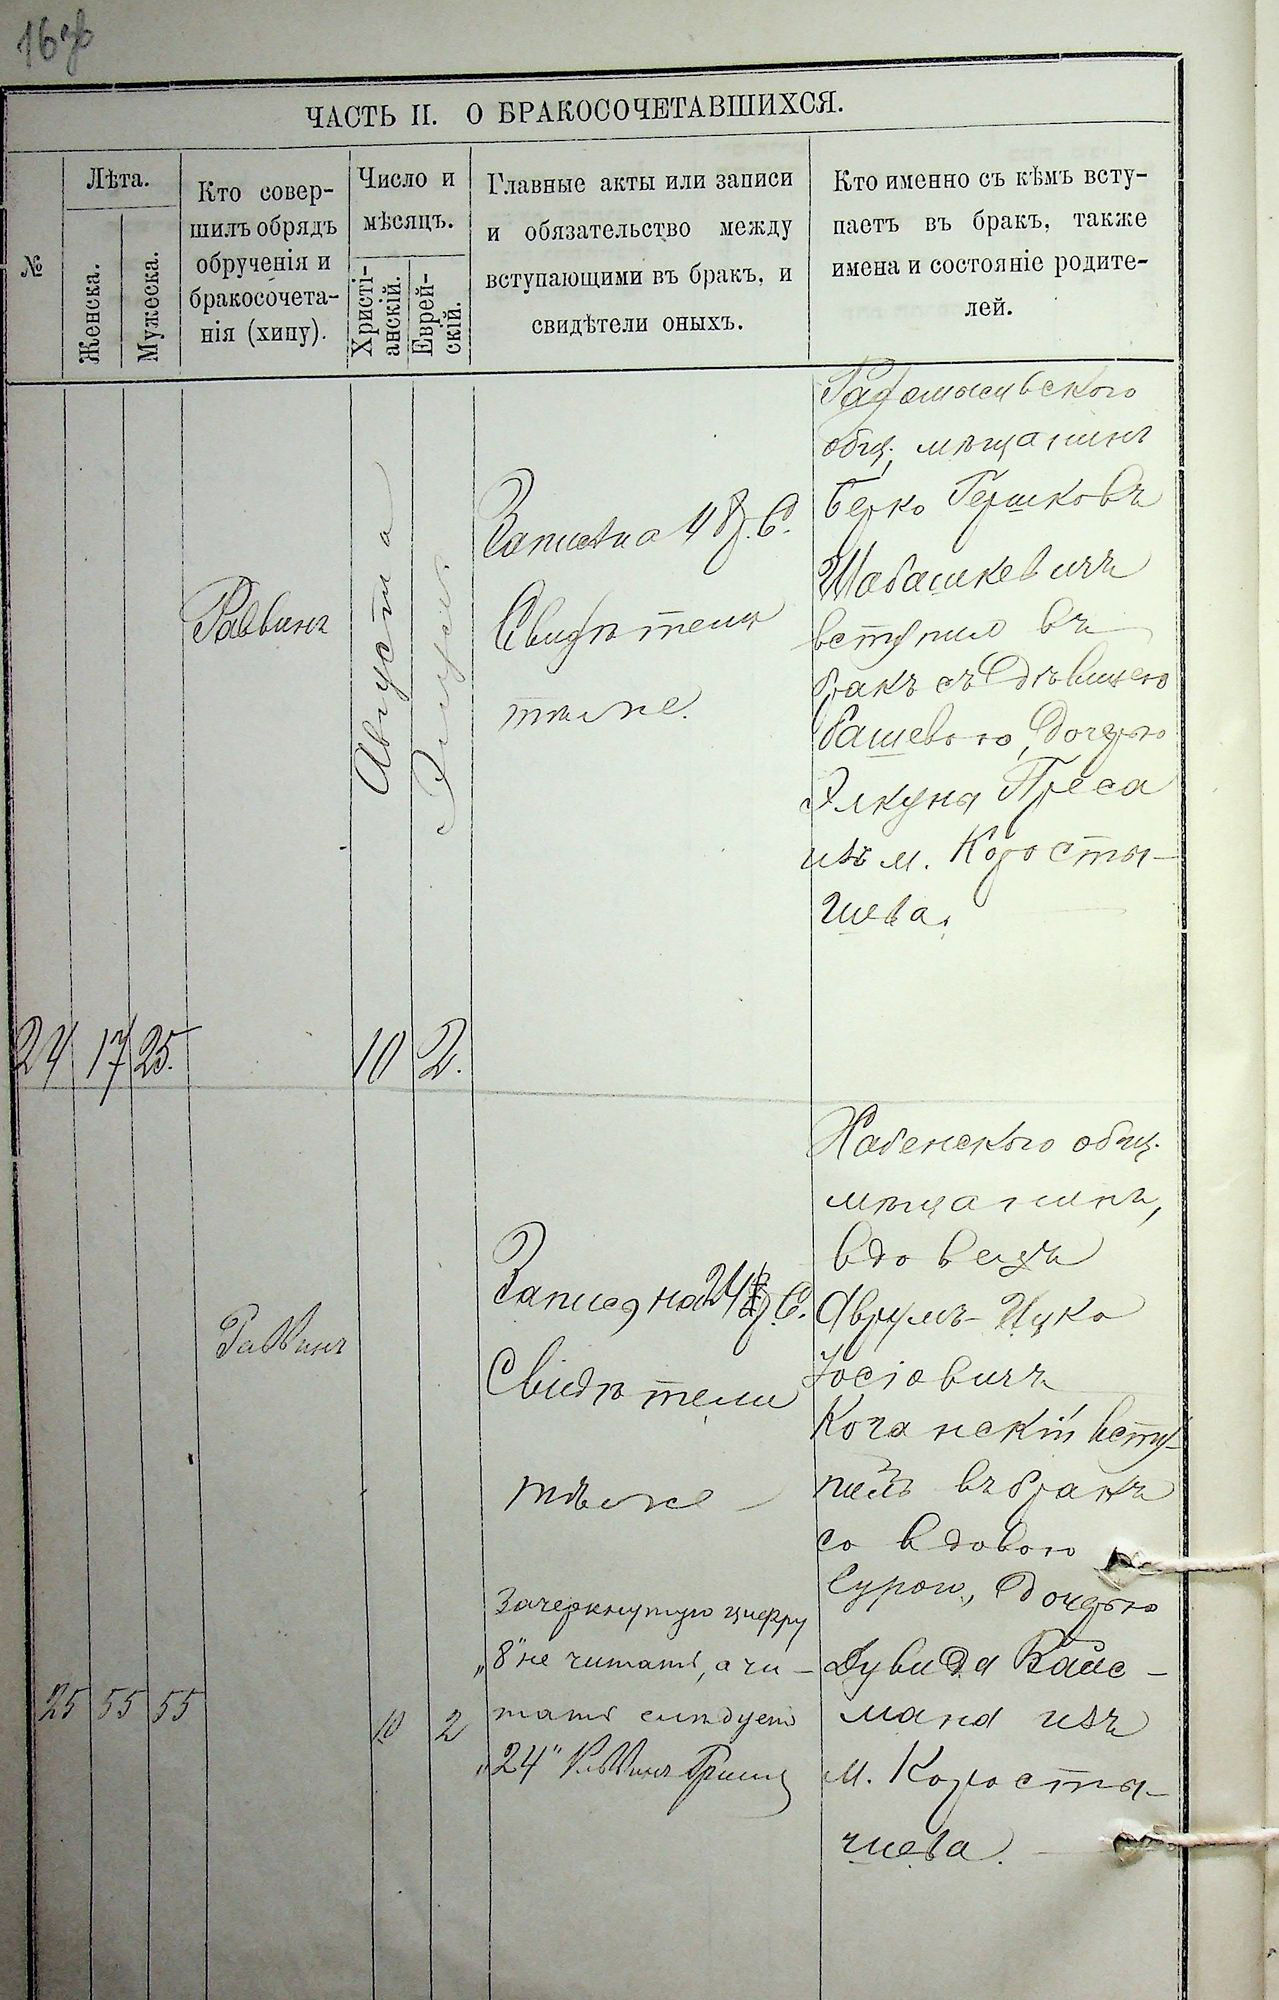 ЧАСТЬ II. О БРАКОСОЧЕТАВШИХСЯ.
№
Лѣта.
Женска.
Мужеска.
Кто совер-
шилъ обрядъ
обрученія и
бракосочета-
нія (хипу).
Число и
мѣсяцъ.
Христі-
анскій.
Еврей-
скій.
Главные акты или записи
и обязательство между
вступающими въ бракъ, и
свидѣтели оныхъ.
Кто именно съ кѣмъ всту-
паетъ въ бракъ, также
имена и состояніе родите-
лей.
24
17
25.
Раввинъ
Августа
10
Элулъ.
2.
Запись на 48 р. С.
Свидѣтели
тѣже.
Радомысльского
общ. мѣщанинъ
Берко Гершковъ
Шабашкевичъ
вступил въ
бракъ съ дѣвицею
башевою, дочерью
Элкуна Преса
изъ м. Коросты-
шева.
25
55
55
Раввинъ
10
2
Запись на 24 р. С.
Свидѣтели
тѣже
Зачеркнутую цифру
„8" не читать, а чи-
тать слѣдует
„24" Раввинъ
Хабенского общ.
мѣщанинъ,
вдовецъ
Аврумъ-Ицко
Іосіовичъ
Коганскій всту-
пилъ въ бракъ
со вдовою
Сурою, дочерью
Дувида Вайс-
мана изъ
м. Коросты-
шева.